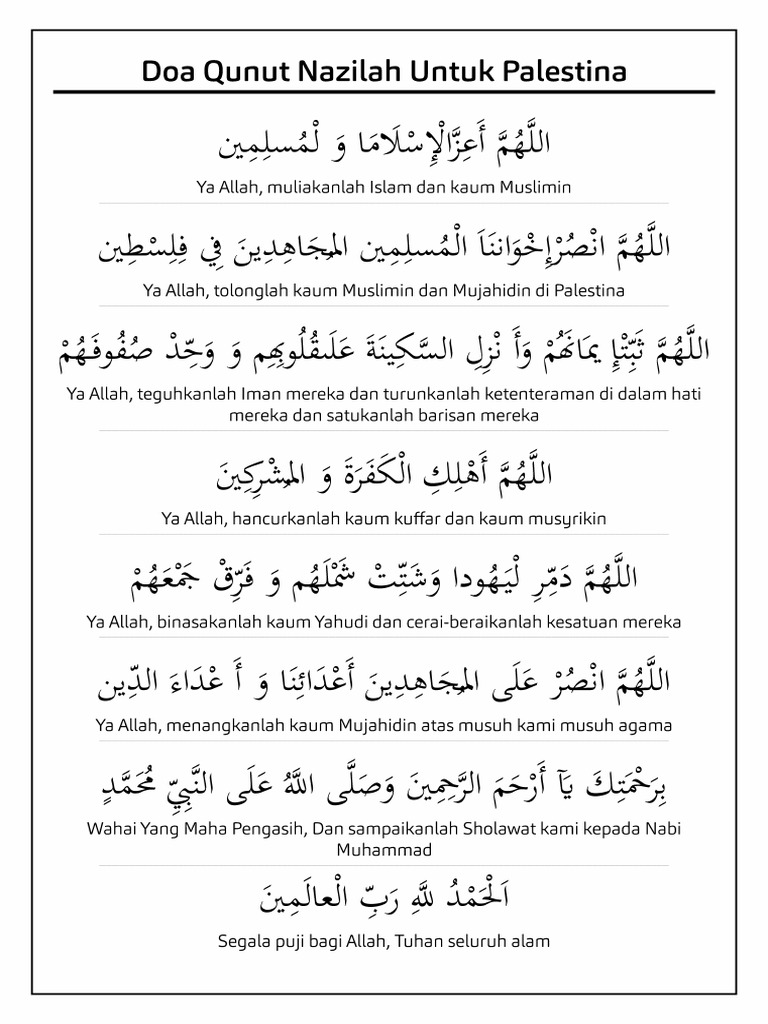 Doa Qunut Nazilah Untuk Palestina
اللَّهُمَّ أَعِزَّالْإِسْلَامَا وَ لْمُسلِمِين
Ya Allah, muliakanlah Islam dan kaum Muslimin
اللَّهُمَّ انْصُرْإِخْوَاننَاَ الْمُسلِمِين المُجَاهِدِينَ فِي فِلِسْطِين
Ya Allah, tolonglah kaum Muslimin dan Mujahidin di Palestina
اللَّهُمَّ ثَبِّتْإِ يمَانَهُمْ وَأَ نْزِلِ السَّكِينَةَ عَلَىقُلُوبِهِم وَ وَحِّدْ صُفُوفَهُمْ
Ya Allah, teguhkanlah Iman mereka dan turunkanlah ketenteraman di dalam hati
mereka dan satukanlah barisan mereka
اللَّهُمَّ أَهْلِكِ الْكَفَرَةَ وَ المُشْرِكِينَ
Ya Allah, hancurkanlah kaum kuffar dan kaum musyrikin
اللَّهُمَّ دَمِّرِ لْيَهُودا وَشَتِّتْ شَمْلَهُم وَ فَرِّقْ جَمْعَهُمْ
Ya Allah, binasakanlah kaum Yahudi dan cerai-beraikanlah kesatuan mereka
اللَّهُمَّ انْصُرْ عَلَى المُجَاهِدِينَ أَعْدَائِنَا وَ أَ عْدَاءَ الدِّين
Ya Allah, menangkanlah kaum Mujahidin atas musuh kami musuh agama
بِرَحْمَتِكَ يَآ أَرْحَمَ الرَّحِمِينَ وَصَلَّى اللَّهُ عَلَى النَّبِيِّ مُحَمَّدٍ
Wahai Yang Maha Pengasih, Dan sampaikanlah Sholawat kami kepada Nabi
Muhammad
اَلْحَمْدُ للهِ رَبِّ الْعالَمِينَ
Segala puji bagi Allah, Tuhan seluruh alam